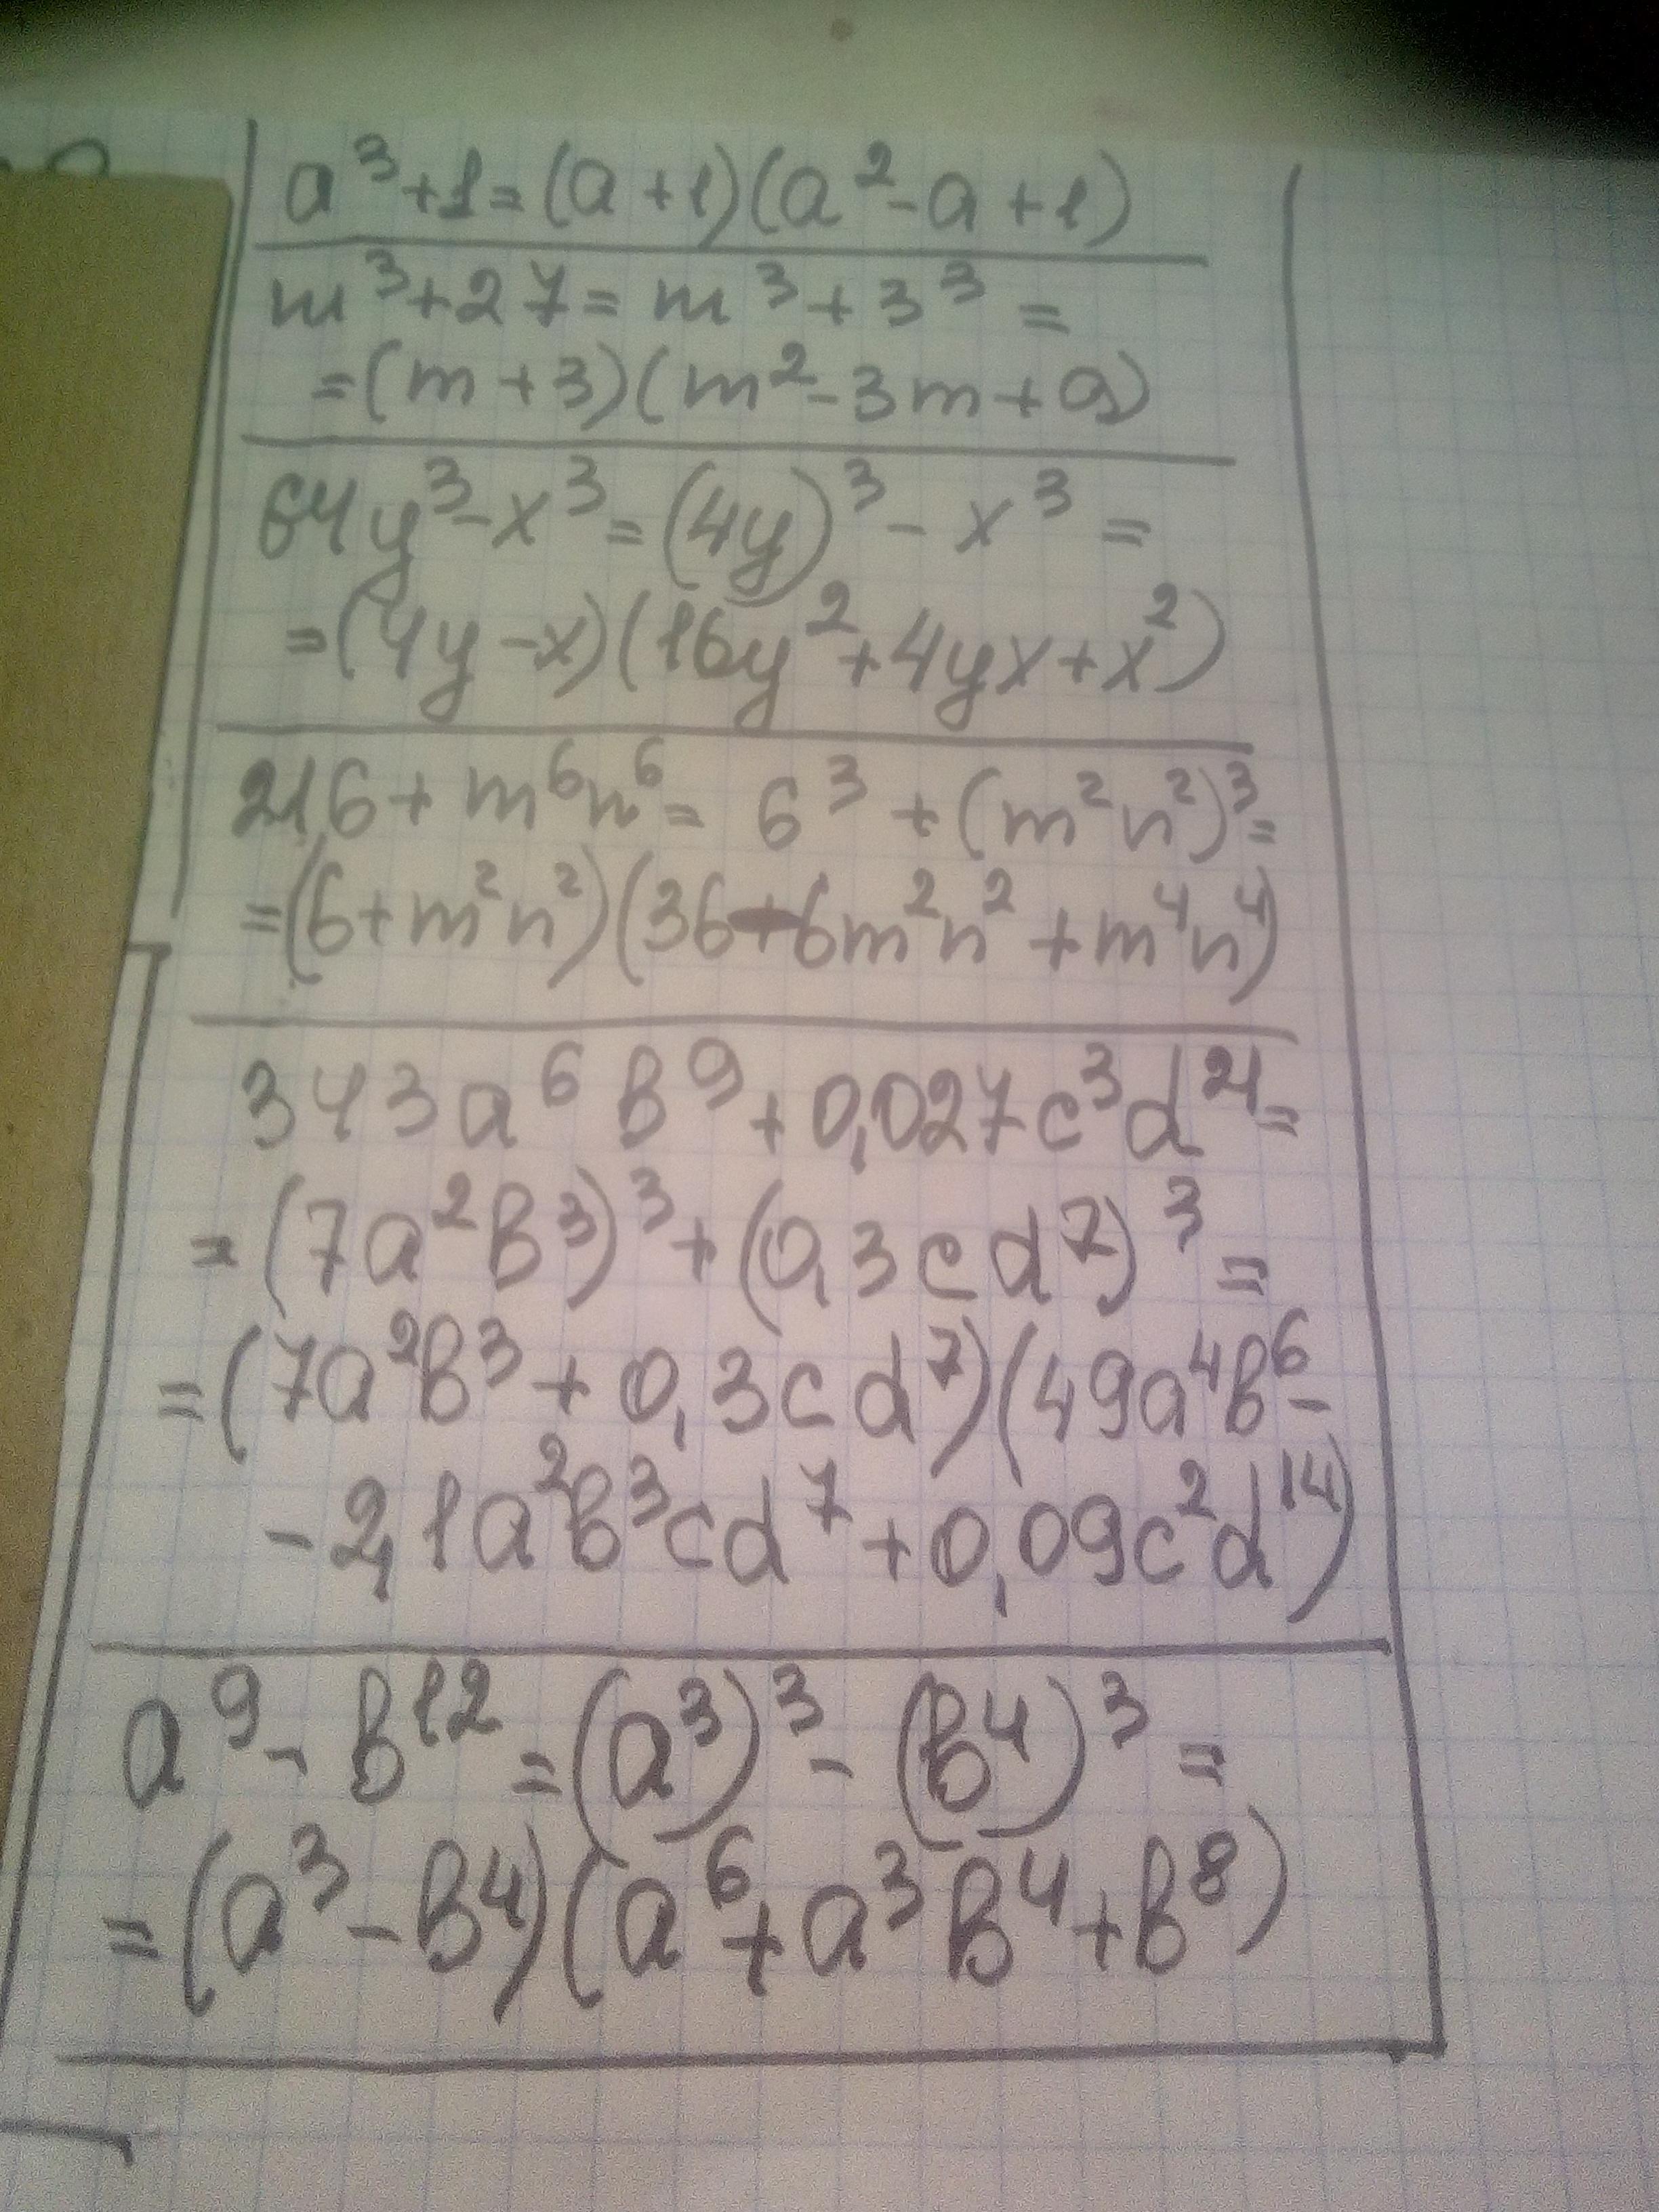 a³+1=(a+1)(a²-a+1)
m³+27=m³+3³=
=(m+3)(m²-3m+9)
64y³-x³=(4y)³-x³=
=(4y-x)(16y²+4yx+x²)
216+m⁶n⁶=6³+(m²n²)³=
=(6+m²n²)(36-6m²n²+m⁴n⁴)
343a⁶b⁹+0,027c³d²¹=
=(7a²b³)³+(0,3cd⁷)³=
=(7a²b³+0,3cd⁷)(49a⁴b⁶-
-2,1a²b³cd⁷+0,09c²d¹⁴)
a⁹-b¹²=(a³)³-(b⁴)³=
=(a³-b⁴)(a⁶+a³b⁴+b⁸)